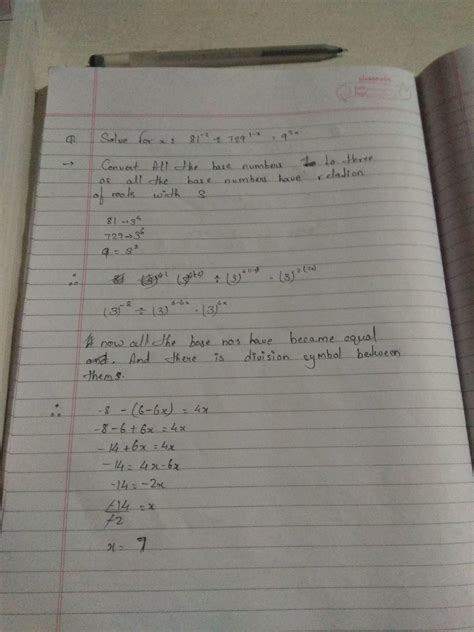 Q Solve for x : 81⁻² ÷ 729¹⁻ˣ = 9²ˣ
→ Convert All the base numbers to three
as all the base numbers have relation
of roots with 3
81 → 3⁴
729 → 3⁶
9 = 3²
∴ ÷ (3) = (3)
(3)⁻⁸ ÷ (3)⁶⁻⁶ˣ = (3)⁴ˣ
now all the base nos have became equal
. And there is division symbol between
them.
∴ -8 - (6-6x) = 4x
-8-6+6x = 4x
-14+6x = 4x
-14 = 4x-6x
-14 = -2x
-14/-2 = x
x = 7